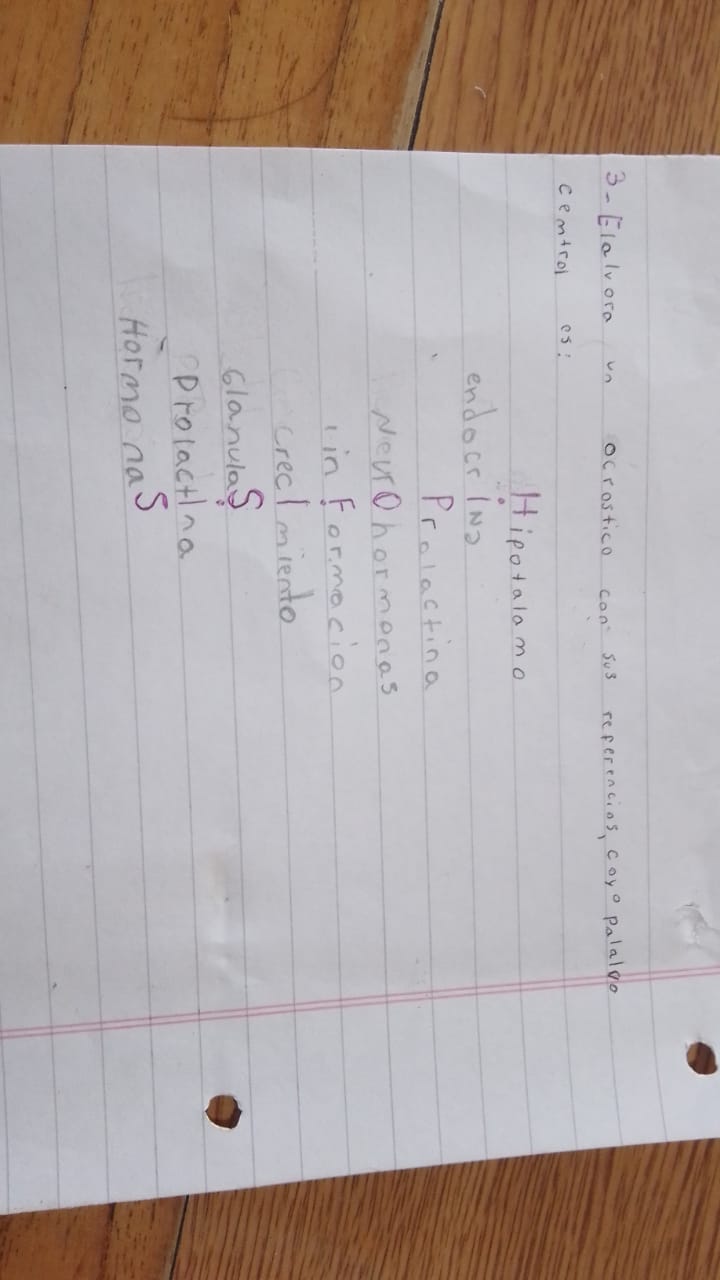 3- Elalvora un acrostico con sus referencias, cuyo palalvo
central es:
Hipotalamo
endocrIno
Prolactina
NeurOhormonas
inFormacion
crecImiento
GlanulaS
ProlactIna
HormonaS